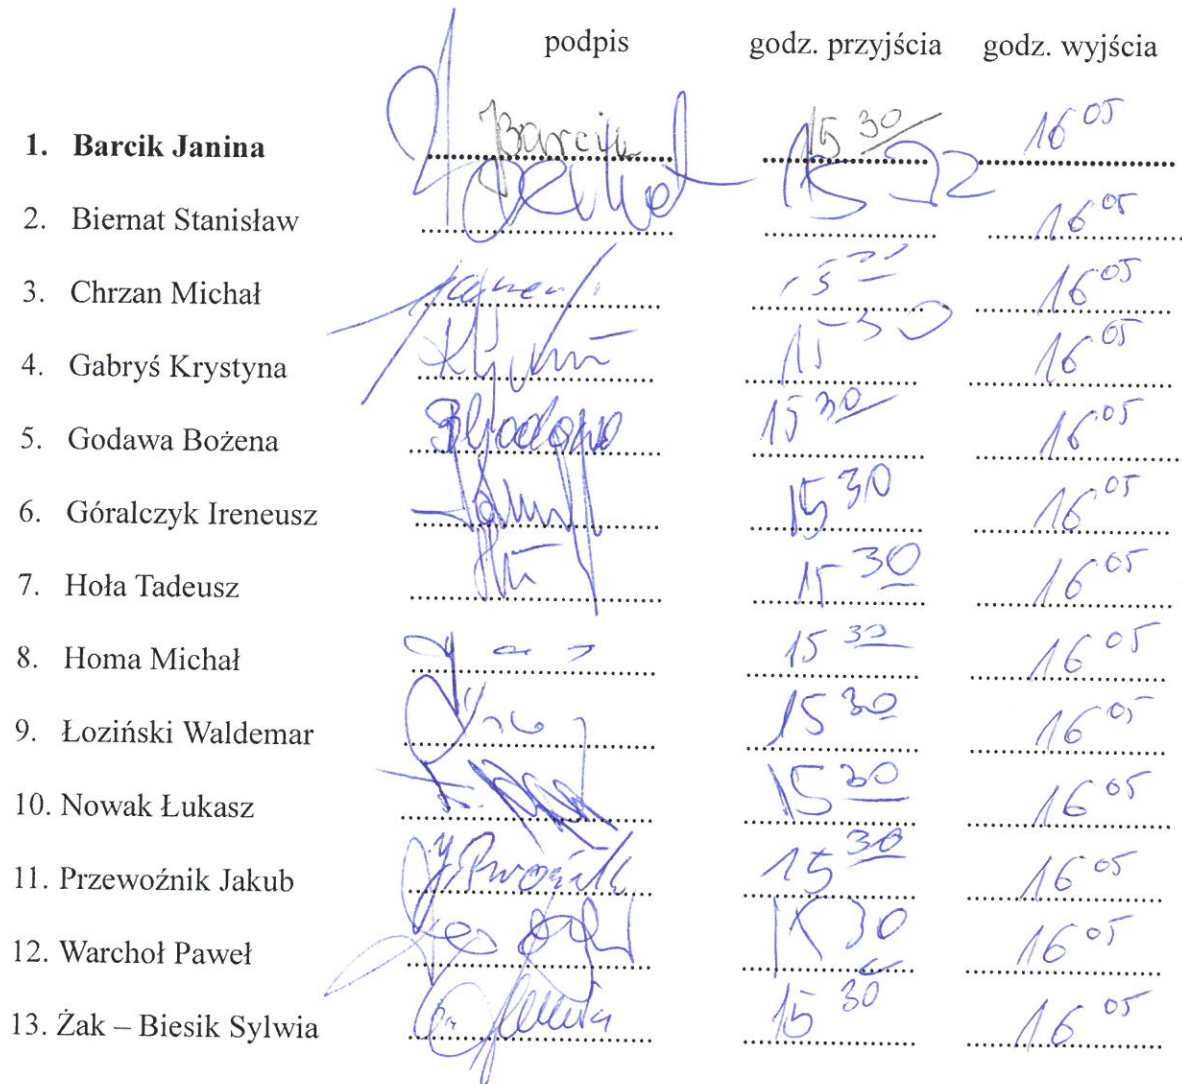 podpis godz. przyjścia godz. wyjścia
1. Barcik Janina Barcik 15 30 16 05
2. Biernat Stanisław 15 32 16 05
3. Chrzan Michał 16 05
4. Gabryś Krystyna 15 30 16 05
5. Godawa Bożena BGodawa 15 30 16 05
6. Góralczyk Ireneusz 15 30 16 05
7. Hoła Tadeusz 15 30 16 05
8. Homa Michał 15 30 16 05
9. Łoziński Waldemar 15 30 16 05
10. Nowak Łukasz 15 30 16 05
11. Przewoźnik Jakub 15 30 16 05
12. Warchoł Paweł 15 30 16 05
13. Żak – Biesik Sylwia 15 30 16 05